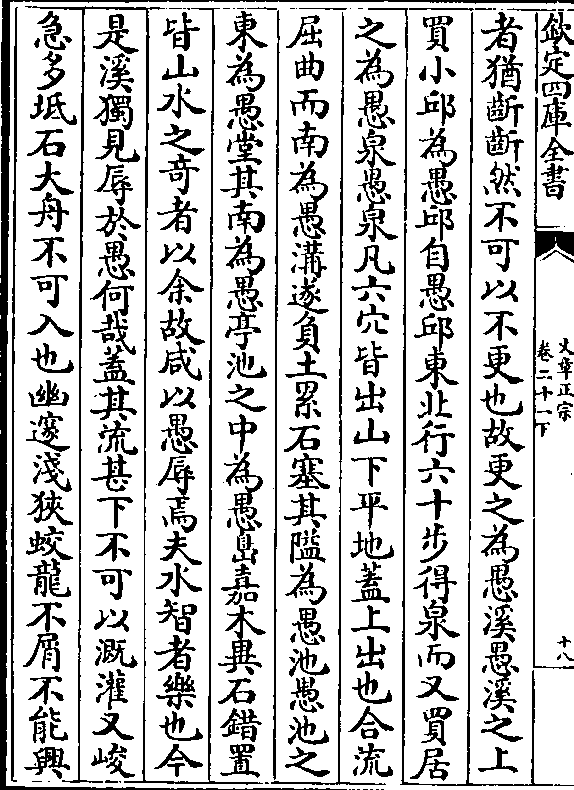 欽定四庫全書
文章正宗
卷二十一下
十八
者猶齗齗然不可以不更也故更之為愚溪愚溪之上
買小邱為愚邱自愚邱東北行六十步得泉而又買居
之為愚泉愚泉凡六穴皆出山下平地蓋上出也合流
屈曲而南為愚溝遂負土累石塞其隘為愚池愚池之
東為愚堂其南為愚亭池之中為愚島嘉木異石錯置
皆山水之奇者以余故咸以愚辱焉夫水智者樂也今
是溪獨見辱於愚何哉蓋其流甚下不可以溉灌又峻
急多坻石大舟不可入也幽邃淺狹蛟龍不屑不能興